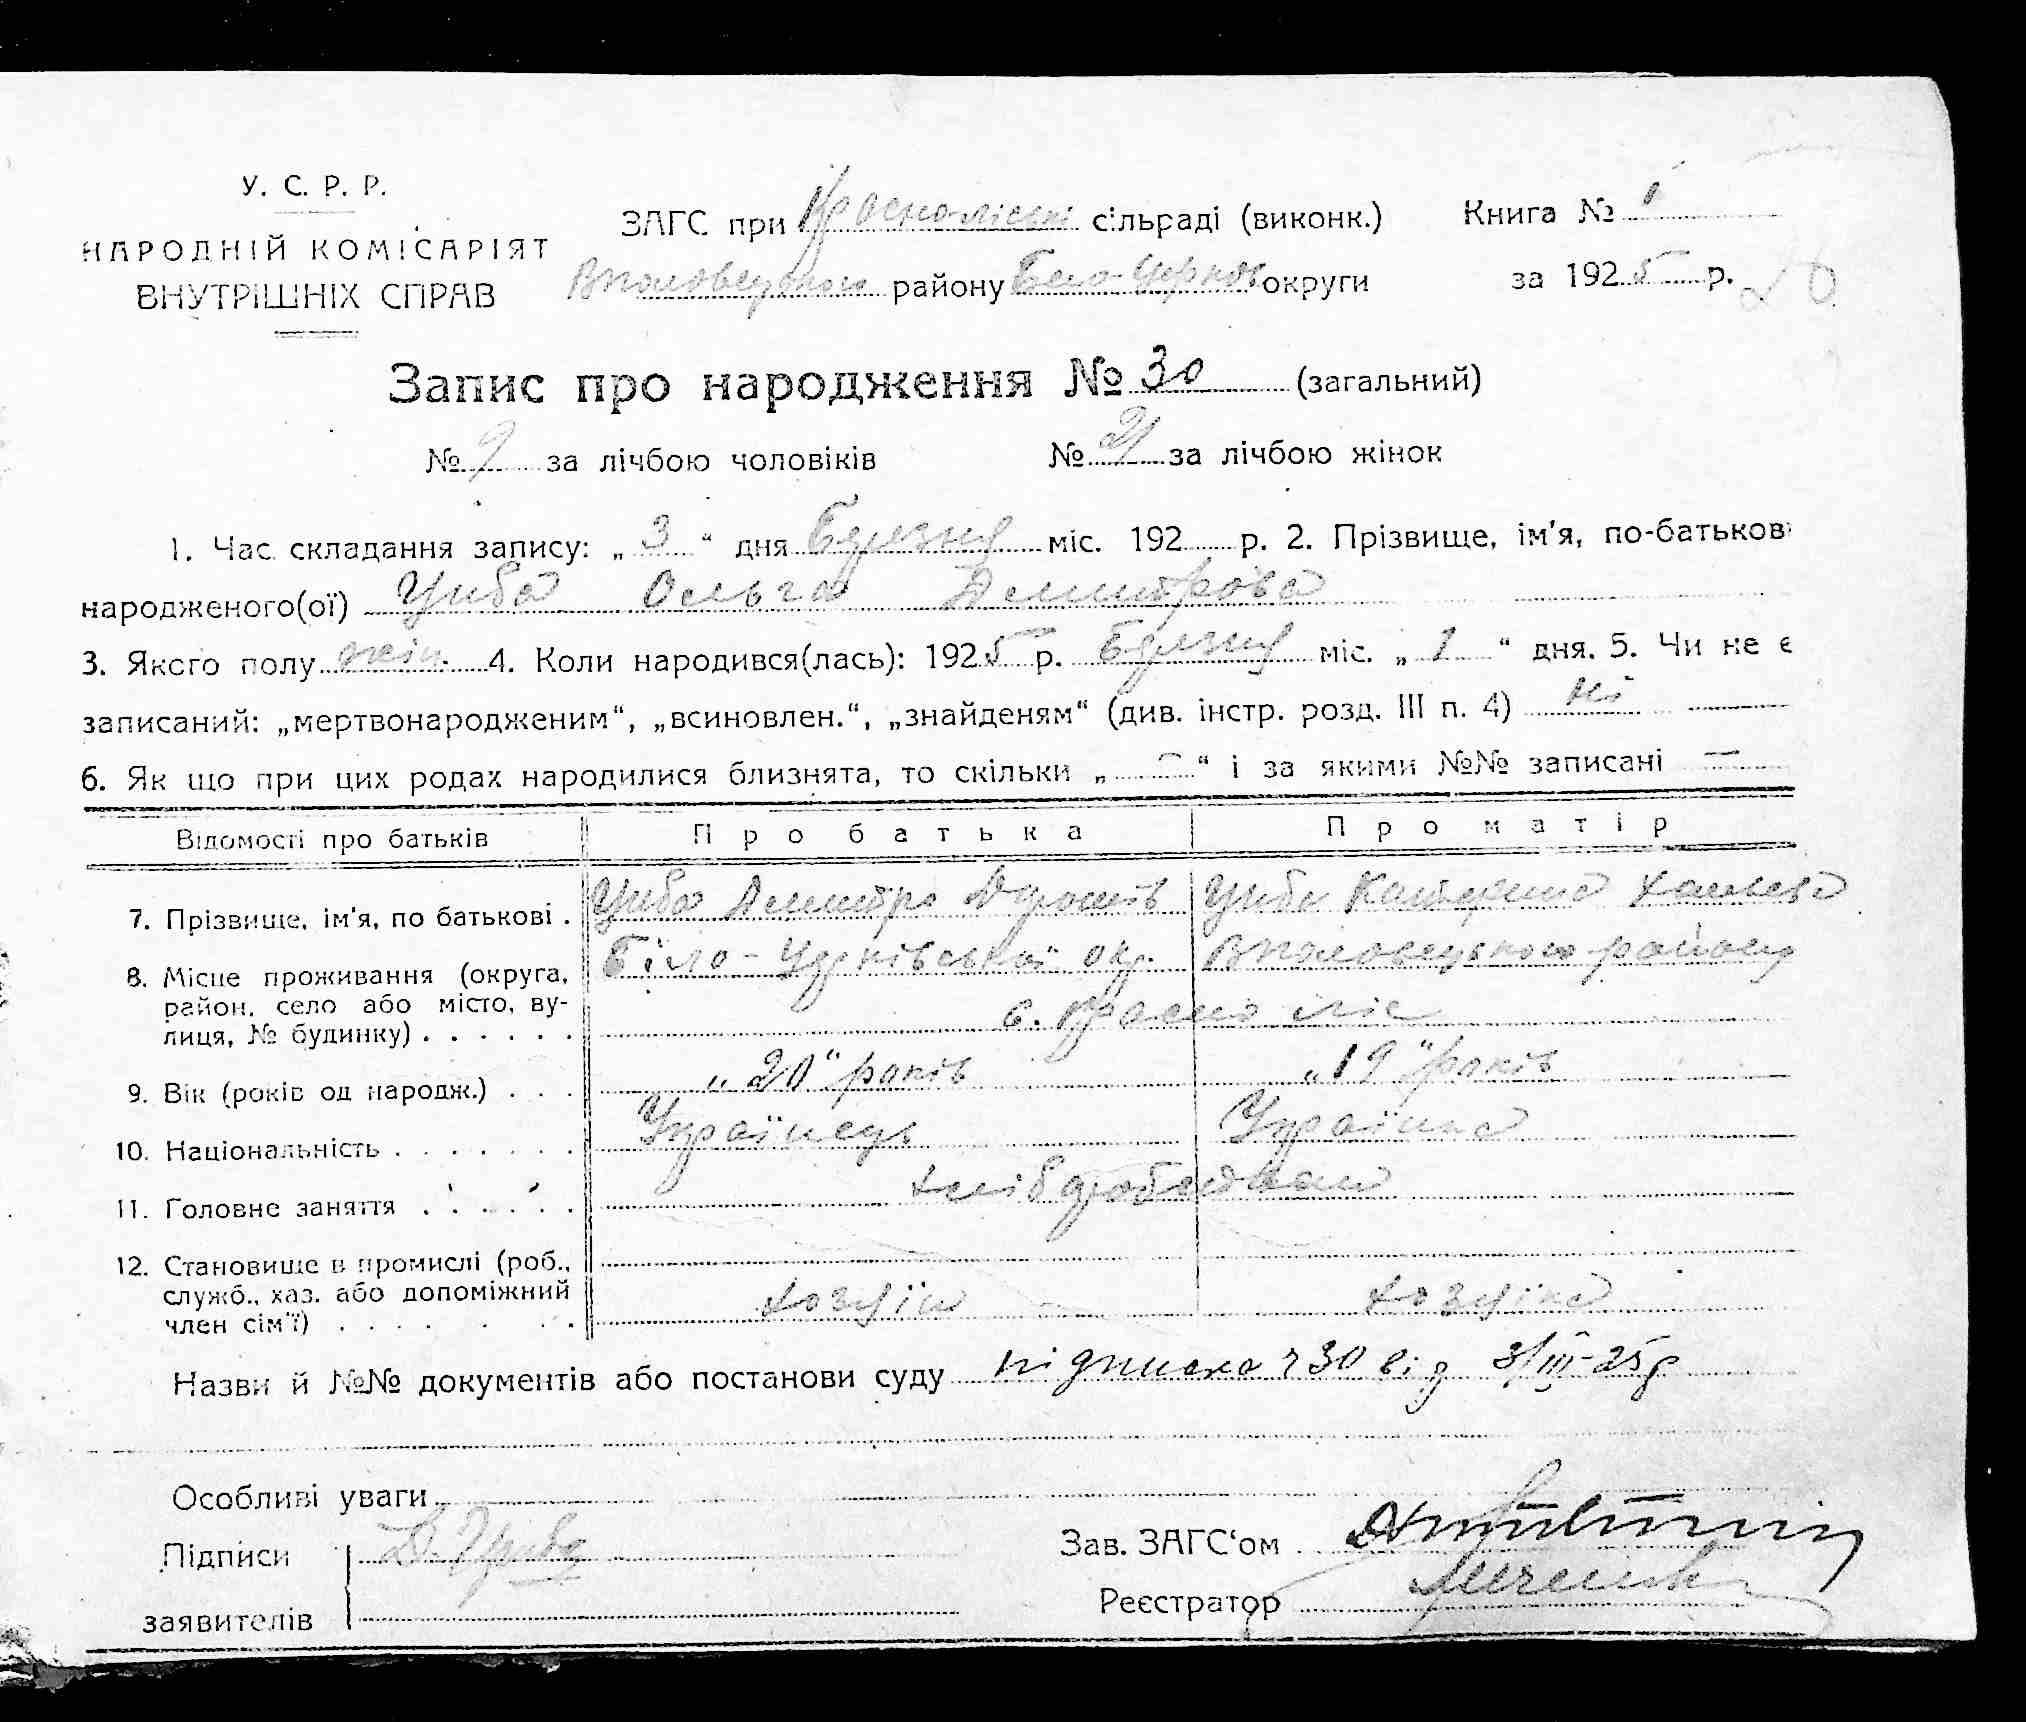 У. С. Р. Р.
НАРОДНІЙ КОМІСАРІЯТ
ВНУТРІШНІХ СПРАВ
ЗАГС при Красноліські сільраді (виконк.)
Вполовецького району Біло-Церков округи
Книга № 1
за 1925 р.
20
Запис про народження № 30 (загальний)
№ 9 за лічбою чоловіків № 21 за лічбою жінок
1. Час складання запису: „ 3 “ дня Березня міс. 192 р. 2. Прізвище, ім'я, по-батькові
народженого(ої) Циба Ольга Демитрова
3. Якого полу жін. 4. Коли народився(лась): 1925 р. Березня міс. „ 1 “ дня. 5. Чи не є
записаний: „мертвонародженим“, „всиновлен.“, „знайденям“ (див. інстр. розд. III п. 4) ні
6. Як що при цих родах народилися близнята, то скільки „ — “ і за якими №№ записані —
Відомості про батьків Про батька Про матір
7. Прізвище, ім'я, по батькові . Циба Демитро Циба Катерина
8. Місце проживання (округа, Біло-Церківської окр. Вполовецького району
район, село або місто, ву-
лиця, № будинку) . . . . . . с. Красно ліс
9. Вік (років од народж.) . . . „20“ років „19“ років
10. Національність . . . . . . . Українець Українка
11. Головне заняття . . . . . . хліборобство
12. Становище в промислі (роб.,
служб., хаз. або допоміжний хозяїн хозяїка
член сім'ї) . . . . . .
Назви й №№ документів або постанови суду підписка ч 30 від 3/III-25 р
Особливі уваги
Підписи Д. Циба
заявителів
Зав. ЗАГС‘ом
Реєстратор